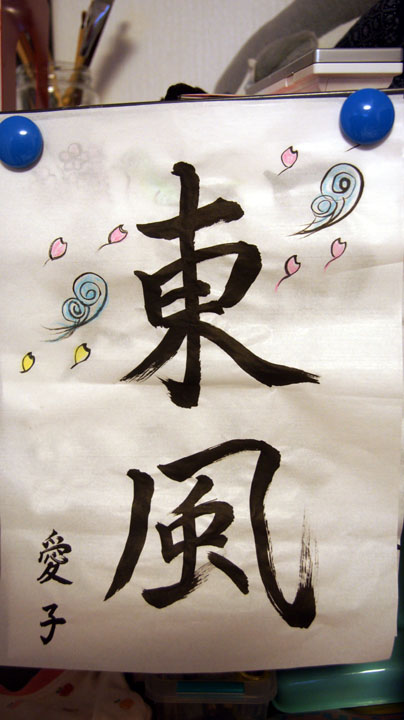 東風
愛子